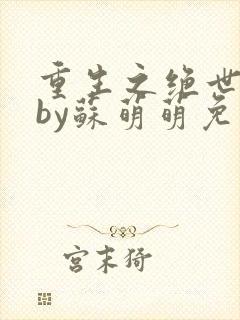 重生之绝世
by蘇萌萌免
宫末猗